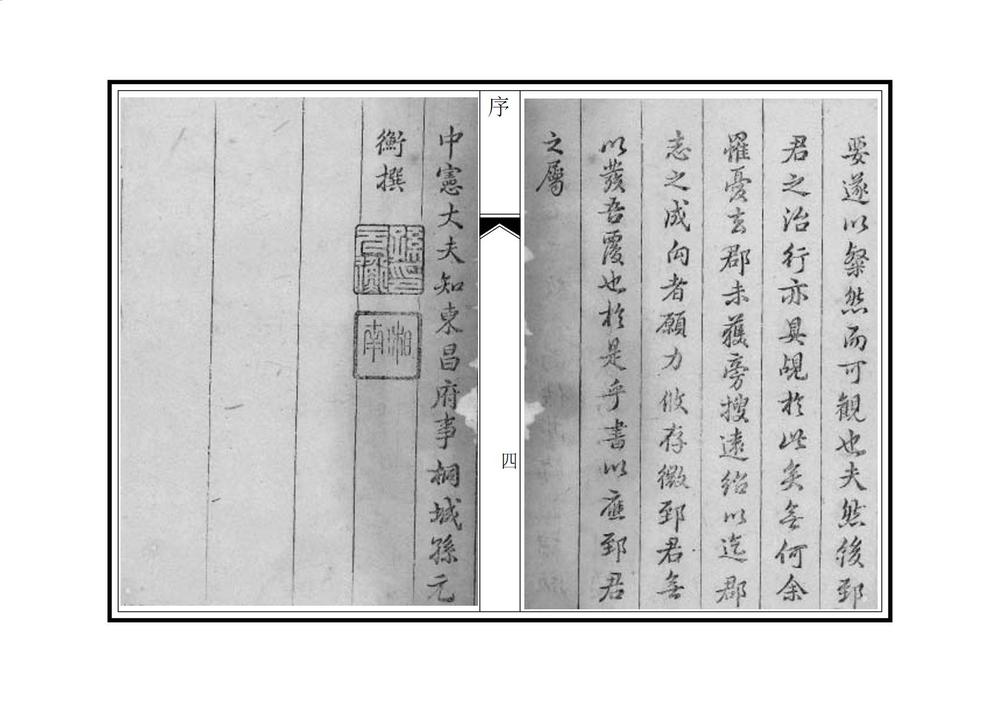 要遂以粲然而可觀也夫然後郅
君之治行亦具覘於此矣無何余
罹憂去郡未獲旁搜遠紹以迄郡
志之成向者願力攸存微郅君無
以發吾覆也於是乎書以應郅君
之屬
序
四
中憲大夫知東昌府事桐城孫元
衡撰
孫印元衡
湘南